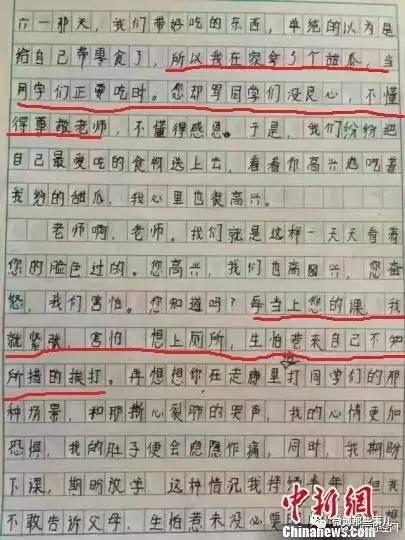 六一那天，我们带好吃的东西，单纯的以为是
给自己带零食了，所以我在家拿了个甜瓜，当
同学们正要吃时。您却骂同学们没良心，不懂
得尊敬老师，不懂得感恩。于是，我们纷纷把
自己最爱吃的食物送上去，看着你高兴地吃着
我给的甜瓜，我心里也很高兴。
老师啊，老师。我们就是这样一天天看着
您的脸色过的。您高兴，我们也高兴，您奋
怒，我们害怕。您知道吗？每当上您的课，我
就紧张，害怕，想上厕所，生怕惹来自己不知
所措的挨打。再想想你在走廊里打同学们的那
种场景，和那撕心裂肺的哭声，我的心情更加
恐惧，我的肚子便会隐隐作痛，同时，我期盼
下课，期盼放学，这种情况我持续半年，但我
不敢告诉父母，生怕惹来没必要
中新网
Chinanews.com
微博那些事儿